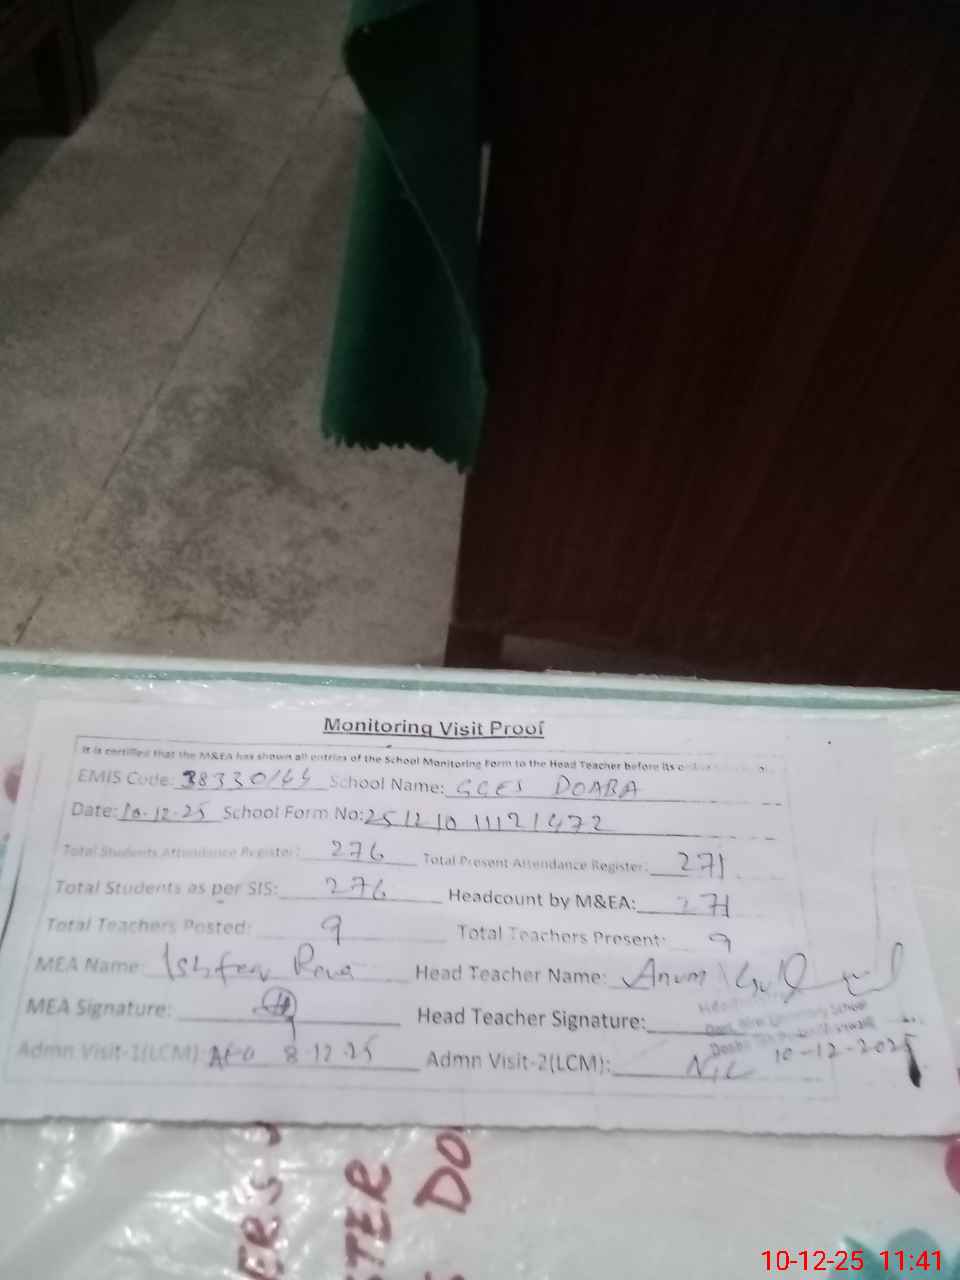 Monitoring Visit Proof
It is certified that the M&EA has shown all entries of the School Monitoring Form to the Head Teacher before its
EMIS Code: 38330144 School Name: GGES DOABA
Date: 10-12-25 School Form No: 25121011121472
Total Students Attendance Register: 276 Total Present Attendance Register: 271
Total Students as per SIS: 276 Headcount by M&EA: 271
Total Teachers Posted: 9 Total Teachers Present: 9
MEA Name: Head Teacher Name: Anum Gul
MEA Signature: Head Teacher Signature:
School
Doaba
Admn Visit-1(LCM): AEO 8-12-25 Admn Visit-2(LCM): NIL 10-12-2025
ERS
STER
DO
10-12-25 11:41